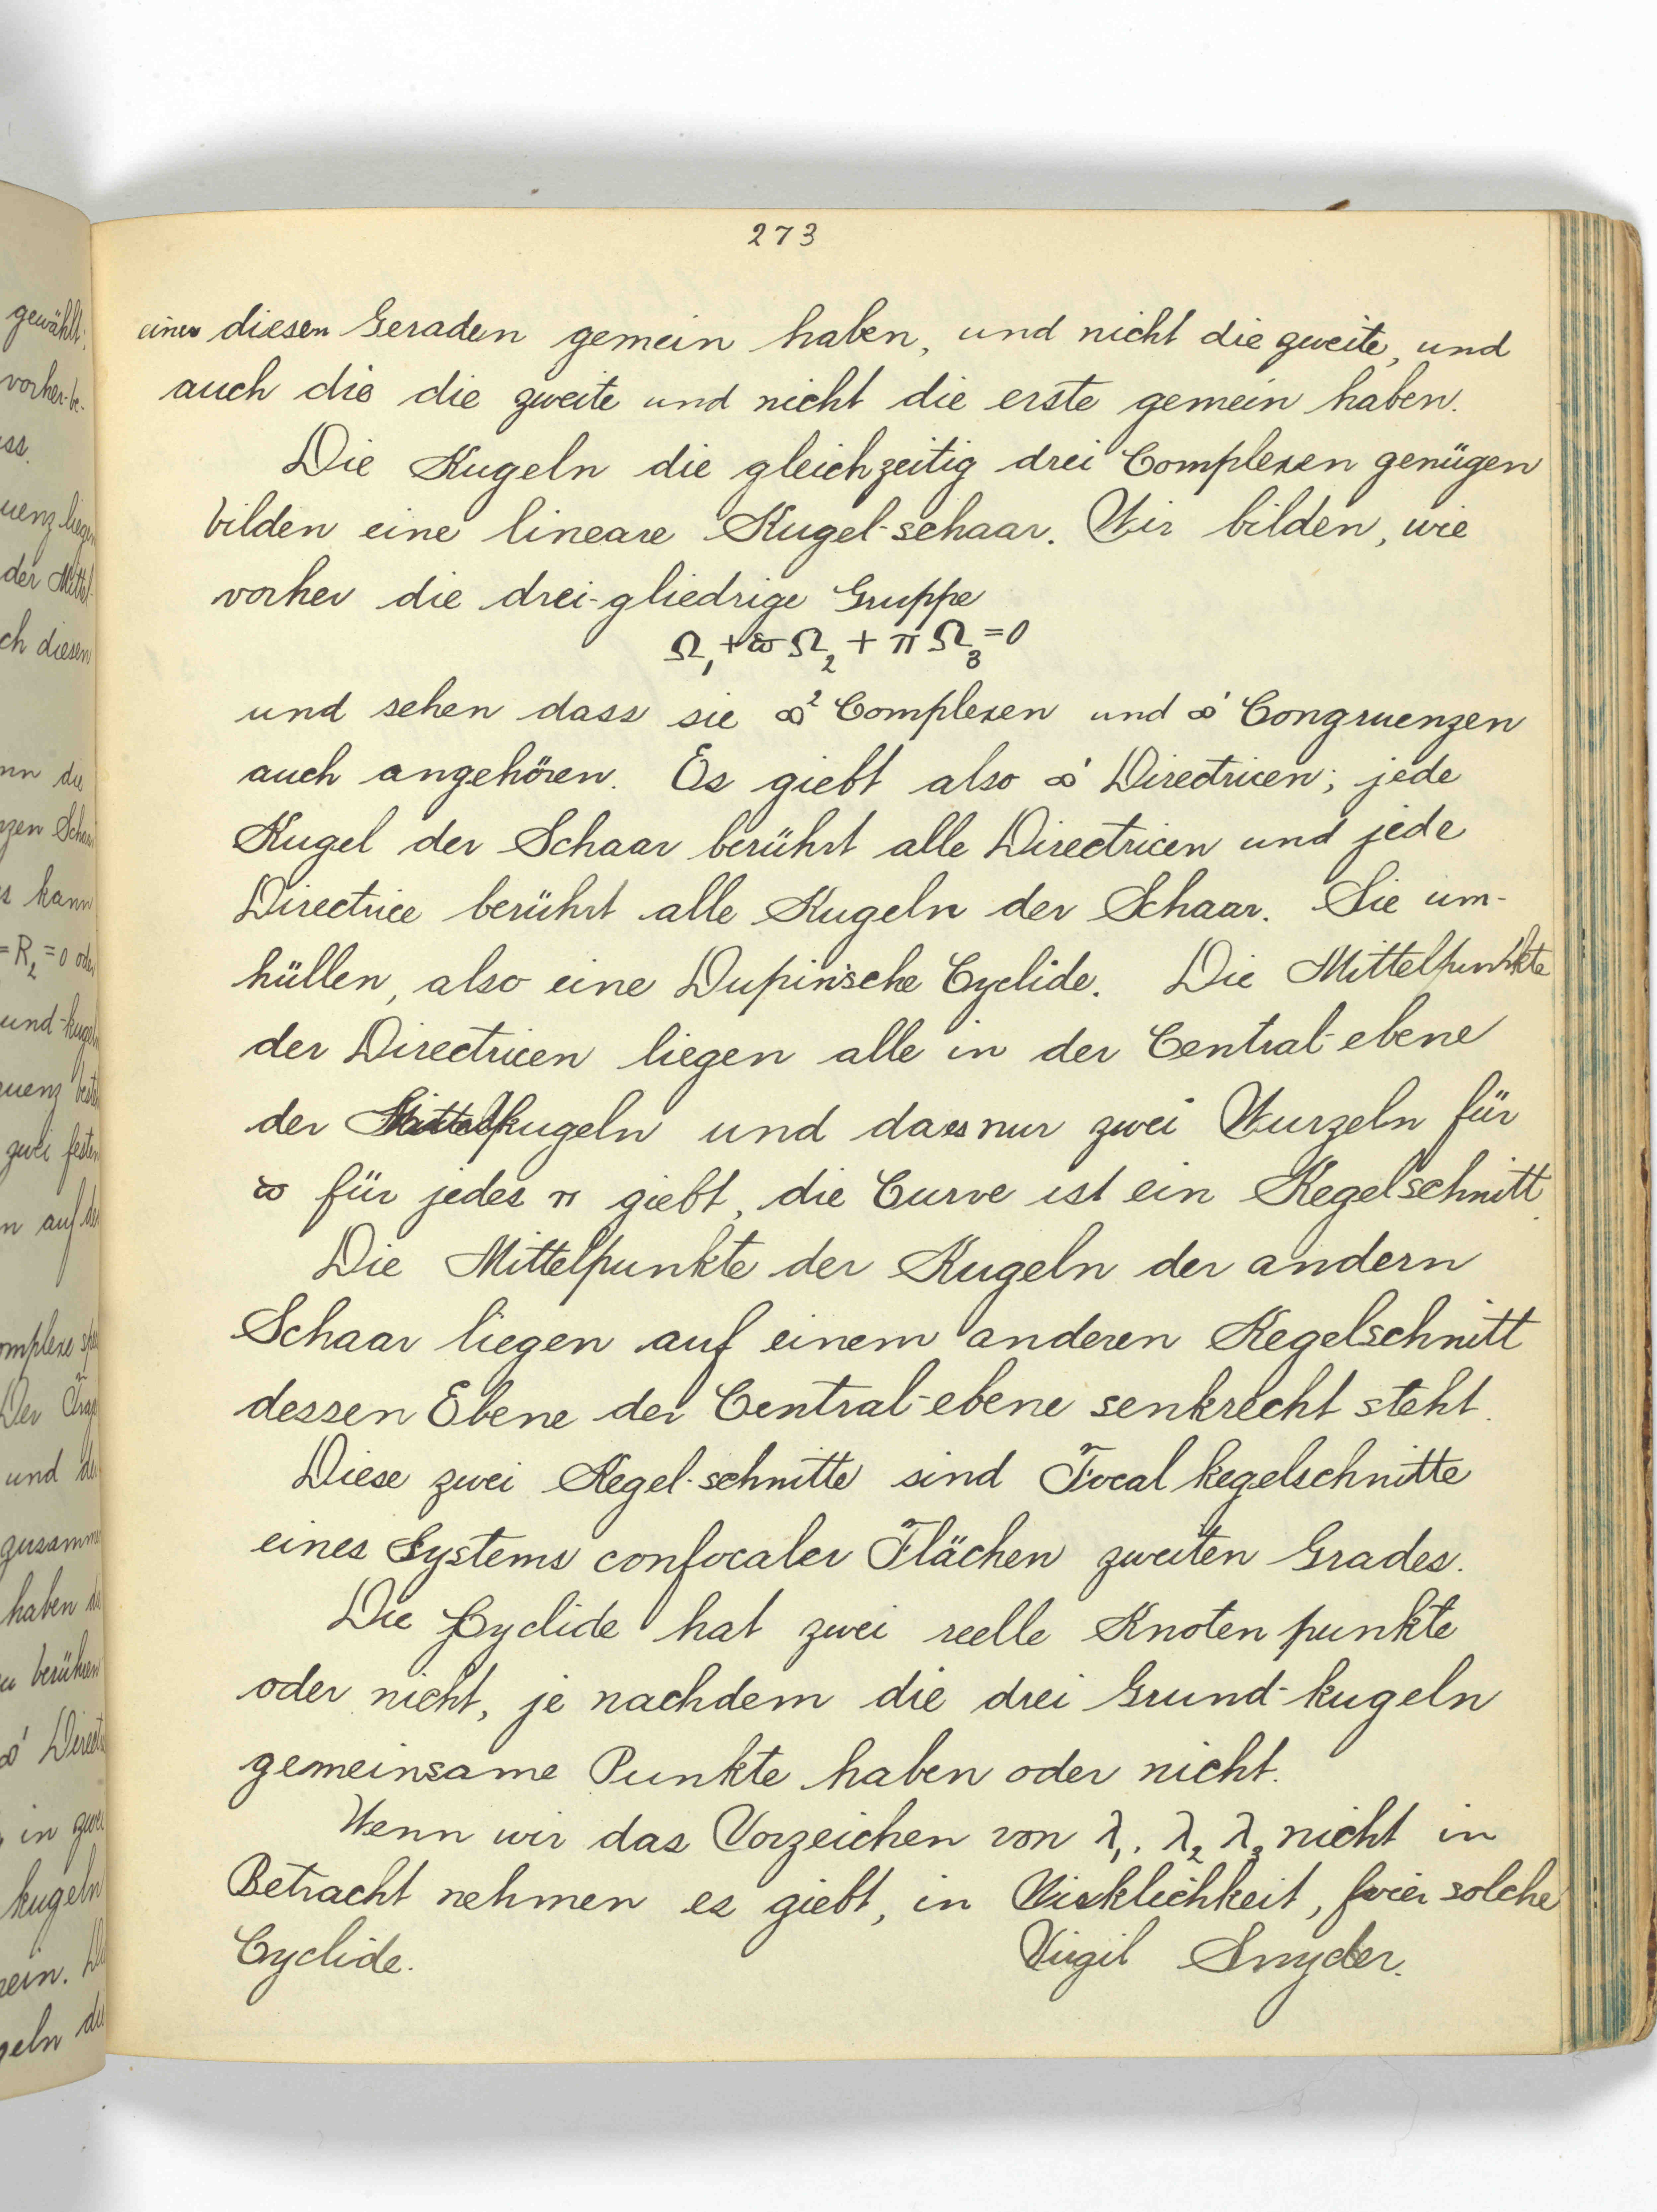 273
einen diesen Geraden gemein haben, und nicht die zweite, und
auch die die zweite und nicht die erste gemein haben.
Die Kugeln die gleichzeitig drei Complexen genügen
bilden eine lineare Kugel-schaar. Wir bilden, wie
vorher die drei-gliedrige Gruppe
Ω₁ + ϖ Ω₂ + π Ω₃ = 0
und sehen dass sie ∞² Complexen und ∞' Congruenzen
auch angehören. Es giebt also ∞' Directricen; jede
Kugel der Schaar berührt alle Directricen und jede
Directrice berührt alle Kugeln der Schaar. Sie um-
hüllen, also eine Dupin'sche Cyclide. Die Mittelpunkte
der Directricen liegen alle in der Central-ebene
der kugeln und da es nur zwei Wurzeln für
ϖ für jedes π giebt, die Curve ist ein Kegelschnitt.
Die Mittelpunkte der Kugeln der andern
Schaar liegen auf einem anderen Kegelschnitt
dessen Ebene der Central-ebene senkrecht steht.
Diese zwei Kegel-schnitte sind Focal kegelschnitte
eines Systems confocaler Flächen zweiten Grades.
Die Cyclide hat zwei reelle Knoten punkte
oder nicht, je nachdem die drei Grund-kugeln
gemeinsame Punkte haben oder nicht.
Wenn wir das Vorzeichen von λ₁. λ₂ λ₃ nicht in
Betracht nehmen es giebt, in Wirklichkeit, vier solche
Cyclide. Virgil Snyder.
gewählt;
vorher-be-
ss.
uenz liegen
der Mittel-
ch diesen
nn die
nzen Schaar
s kann
= R₂ = 0 oder
und-kugeln
uenz
zwei festen
n auf der
omplexe
Der
und der
zusammen
haben
u berühren
∞' Direct
, in zwei
kugeln
ein.
geln die